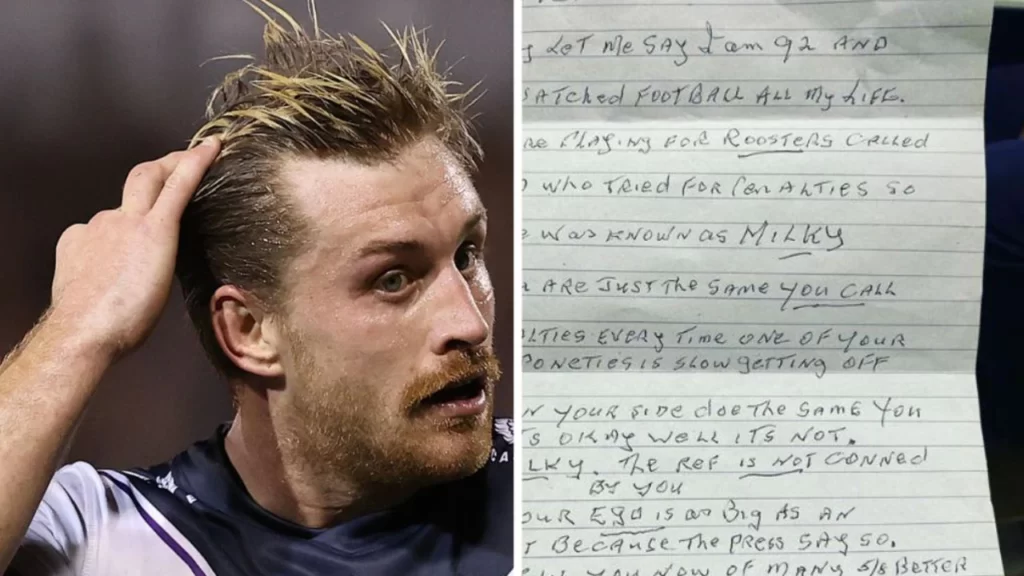 LET ME SAY I am 92 AND
ATChed FOOTBALL ALL My LIFE.
RE PLAYING FOR ROOSTERS CALLED
WHO TRIED FOR PENALTIES SO
E WAS KNOWN AS MILKY
ARE JUST THE SAME YOU CALL
LTIES EVERY TIME ONE OF YOUR
PONETIES IS SLOW gETTING OFF
N YOUR SIDE doE THE SAME YOU
S OKAy WELL ITS NOT.
LKY. THE REF IS NOT CONNED
BY YOU
OUR EgO IS as BIg AS AN
T BECAUSE THE PRESS SAY SO.
YOU NOW OF MANY S/S BETTER